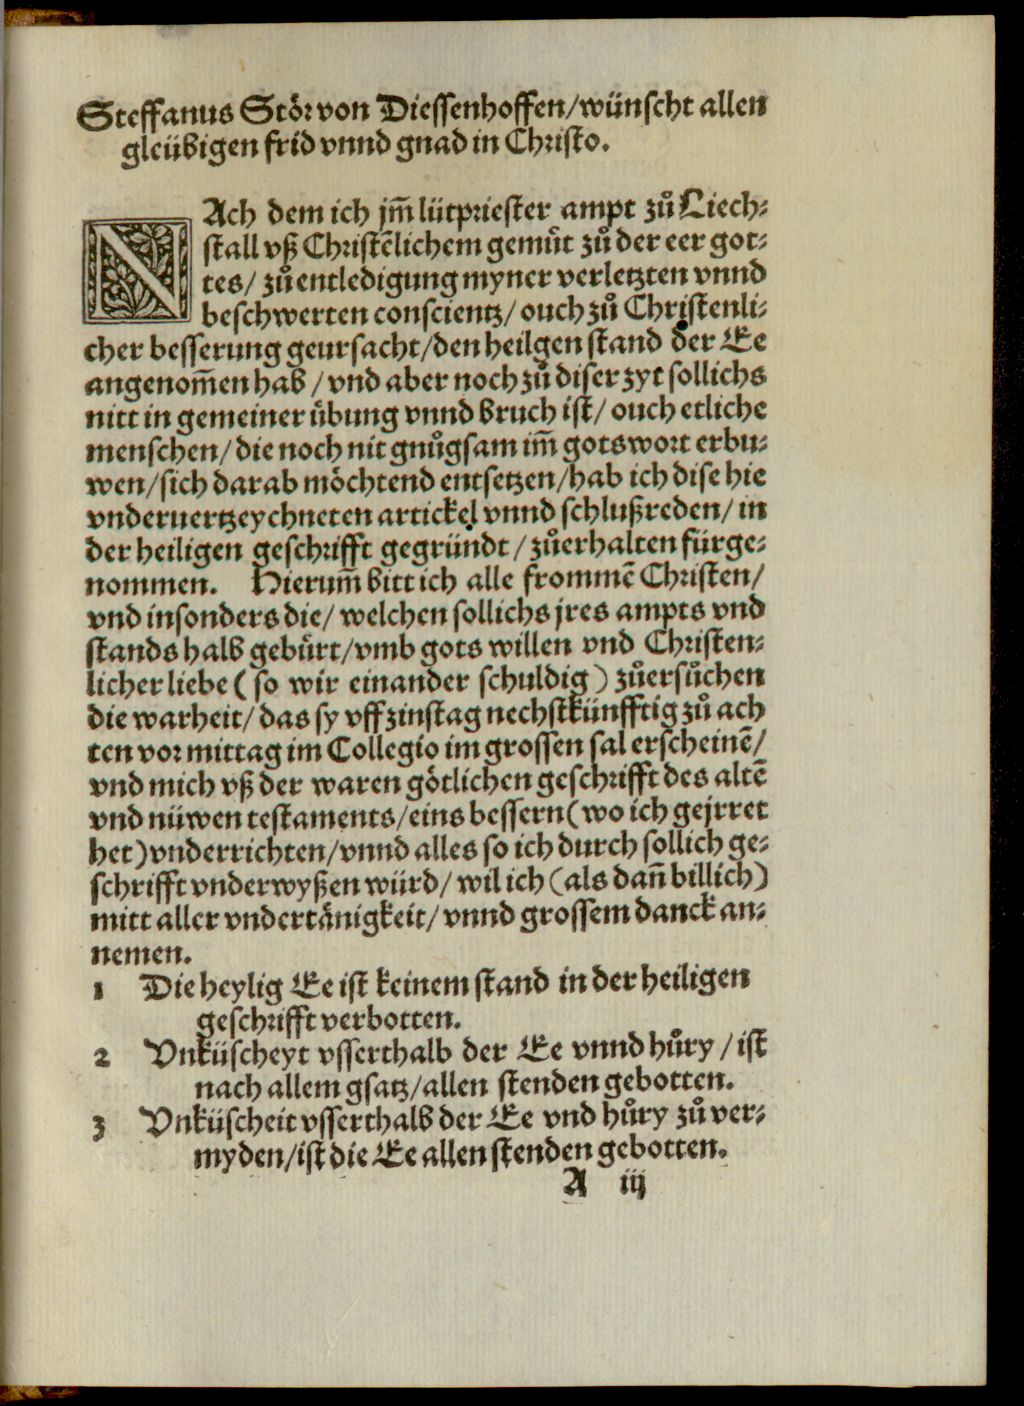 Steffanus Stör von Diessenhoffen/wünscht allen
gleübigen frid vnnd gnad in Christo.
NAch dem ich jm̄ lütpriester ampt zů Liech⸗
stall vß Christēlichem gemůt zů der eer got⸗
tes/ zů entledigung myner verletzten vnnd
beschwerten conscientz/ ouch zů Christenli⸗
cher besserung geursacht/den heilgen stand der Ee
angenom̄en hab /vnd aber noch zů diser zyt sollichs
nitt in gemeiner ůbung vnnd bruch ist/ ouch etliche
menschen/ die noch nit gnůgsam im̄ gotswort erbu⸗
wen/sich darab möchtend entsetzen/hab ich dise hie
vnderuertzeychneten artickel vnnd schlußreden/ in
der heiligen geschrifft gegründt /zůerhalten fürge⸗
nommen. Hierum̄ bitt ich alle frommē Christen/
vnd insonders die/ welchen sollichs jres ampts vnd
stands halb gebůrt/vmb gots willen vnd Christen⸗
licher liebe ( so wir einander schuldig ) zůersůchen
die warheit/das sy vff zinstag nechstkünfftig zů ach
ten vor mittag im Collegio im grossen sal erscheinē/
vnd mich vß der waren götlichen geschrifft des altē
vnd nüwen testaments/eins bessern(wo ich gejrret
het)vnderrichten/vnnd alles so ich durch sollich ge⸗
schrifft vnderwyßen würd/ wil ich (als dan̄ billich)
mitt aller vndertänigkeit/ vnnd grossem danck an⸗
nemen.
1 Die heylig Ee ist keinem stand in der heiligen
geschrifft verbotten.
2 Vnküscheyt vsserthalb der Ee vnnd hůry /ist
nach allem gsatz/allen stenden gebotten.
3 Vnküscheit vsserthalb der Ee vnd hůry zů ver⸗
myden/ist die Ee allen stenden gebotten.
A iij